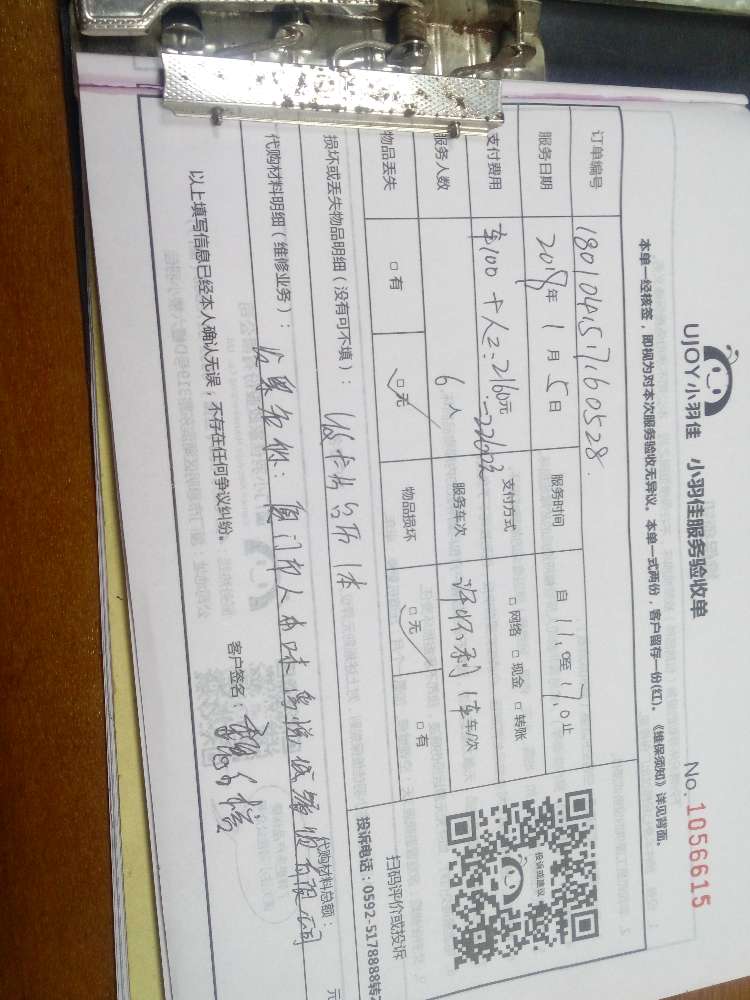 UJOY小羽佳 小羽佳服务验收单
No. 1056615
本单一经核签，即视为对本次服务验收无异议。本单一式两份，客户留存一份(红)。《维保须知》详见背面。
订单编号 1801041517160528
服务日期 2018年 1月 5日 服务时间 自 11:0至 17:0止
支付费用 车100 + 人工:2160元=2260元 支付方式 □网络 □现金 □转账
服务人数 6人 服务车次 1车车/次
物品丢失 □有 □无 物品损坏 □无 □有
损坏或丢失物品明细（没有可不填）： 1本
代购材料明细（维修业务）： 发票名称：厦门市人本 有限公司
代购材料总额： 元
以上填写信息已经本人确认无误，不存在任何争议纠纷。 客户签名：
投诉或建议
扫码评价或投诉
投诉电话：0592-5178888转